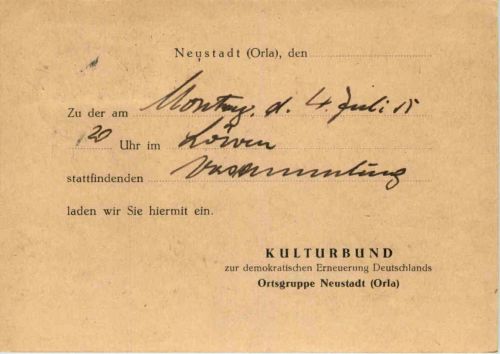 Neustadt (Orla), den
Zu der am Montag, d. 4. Juli 15
20 Uhr im Löwen
stattfindenden Versammlung
laden wir Sie hiermit ein.
KULTURBUND
zur demokratischen Erneuerung Deutschlands
Ortsgruppe Neustadt (Orla)